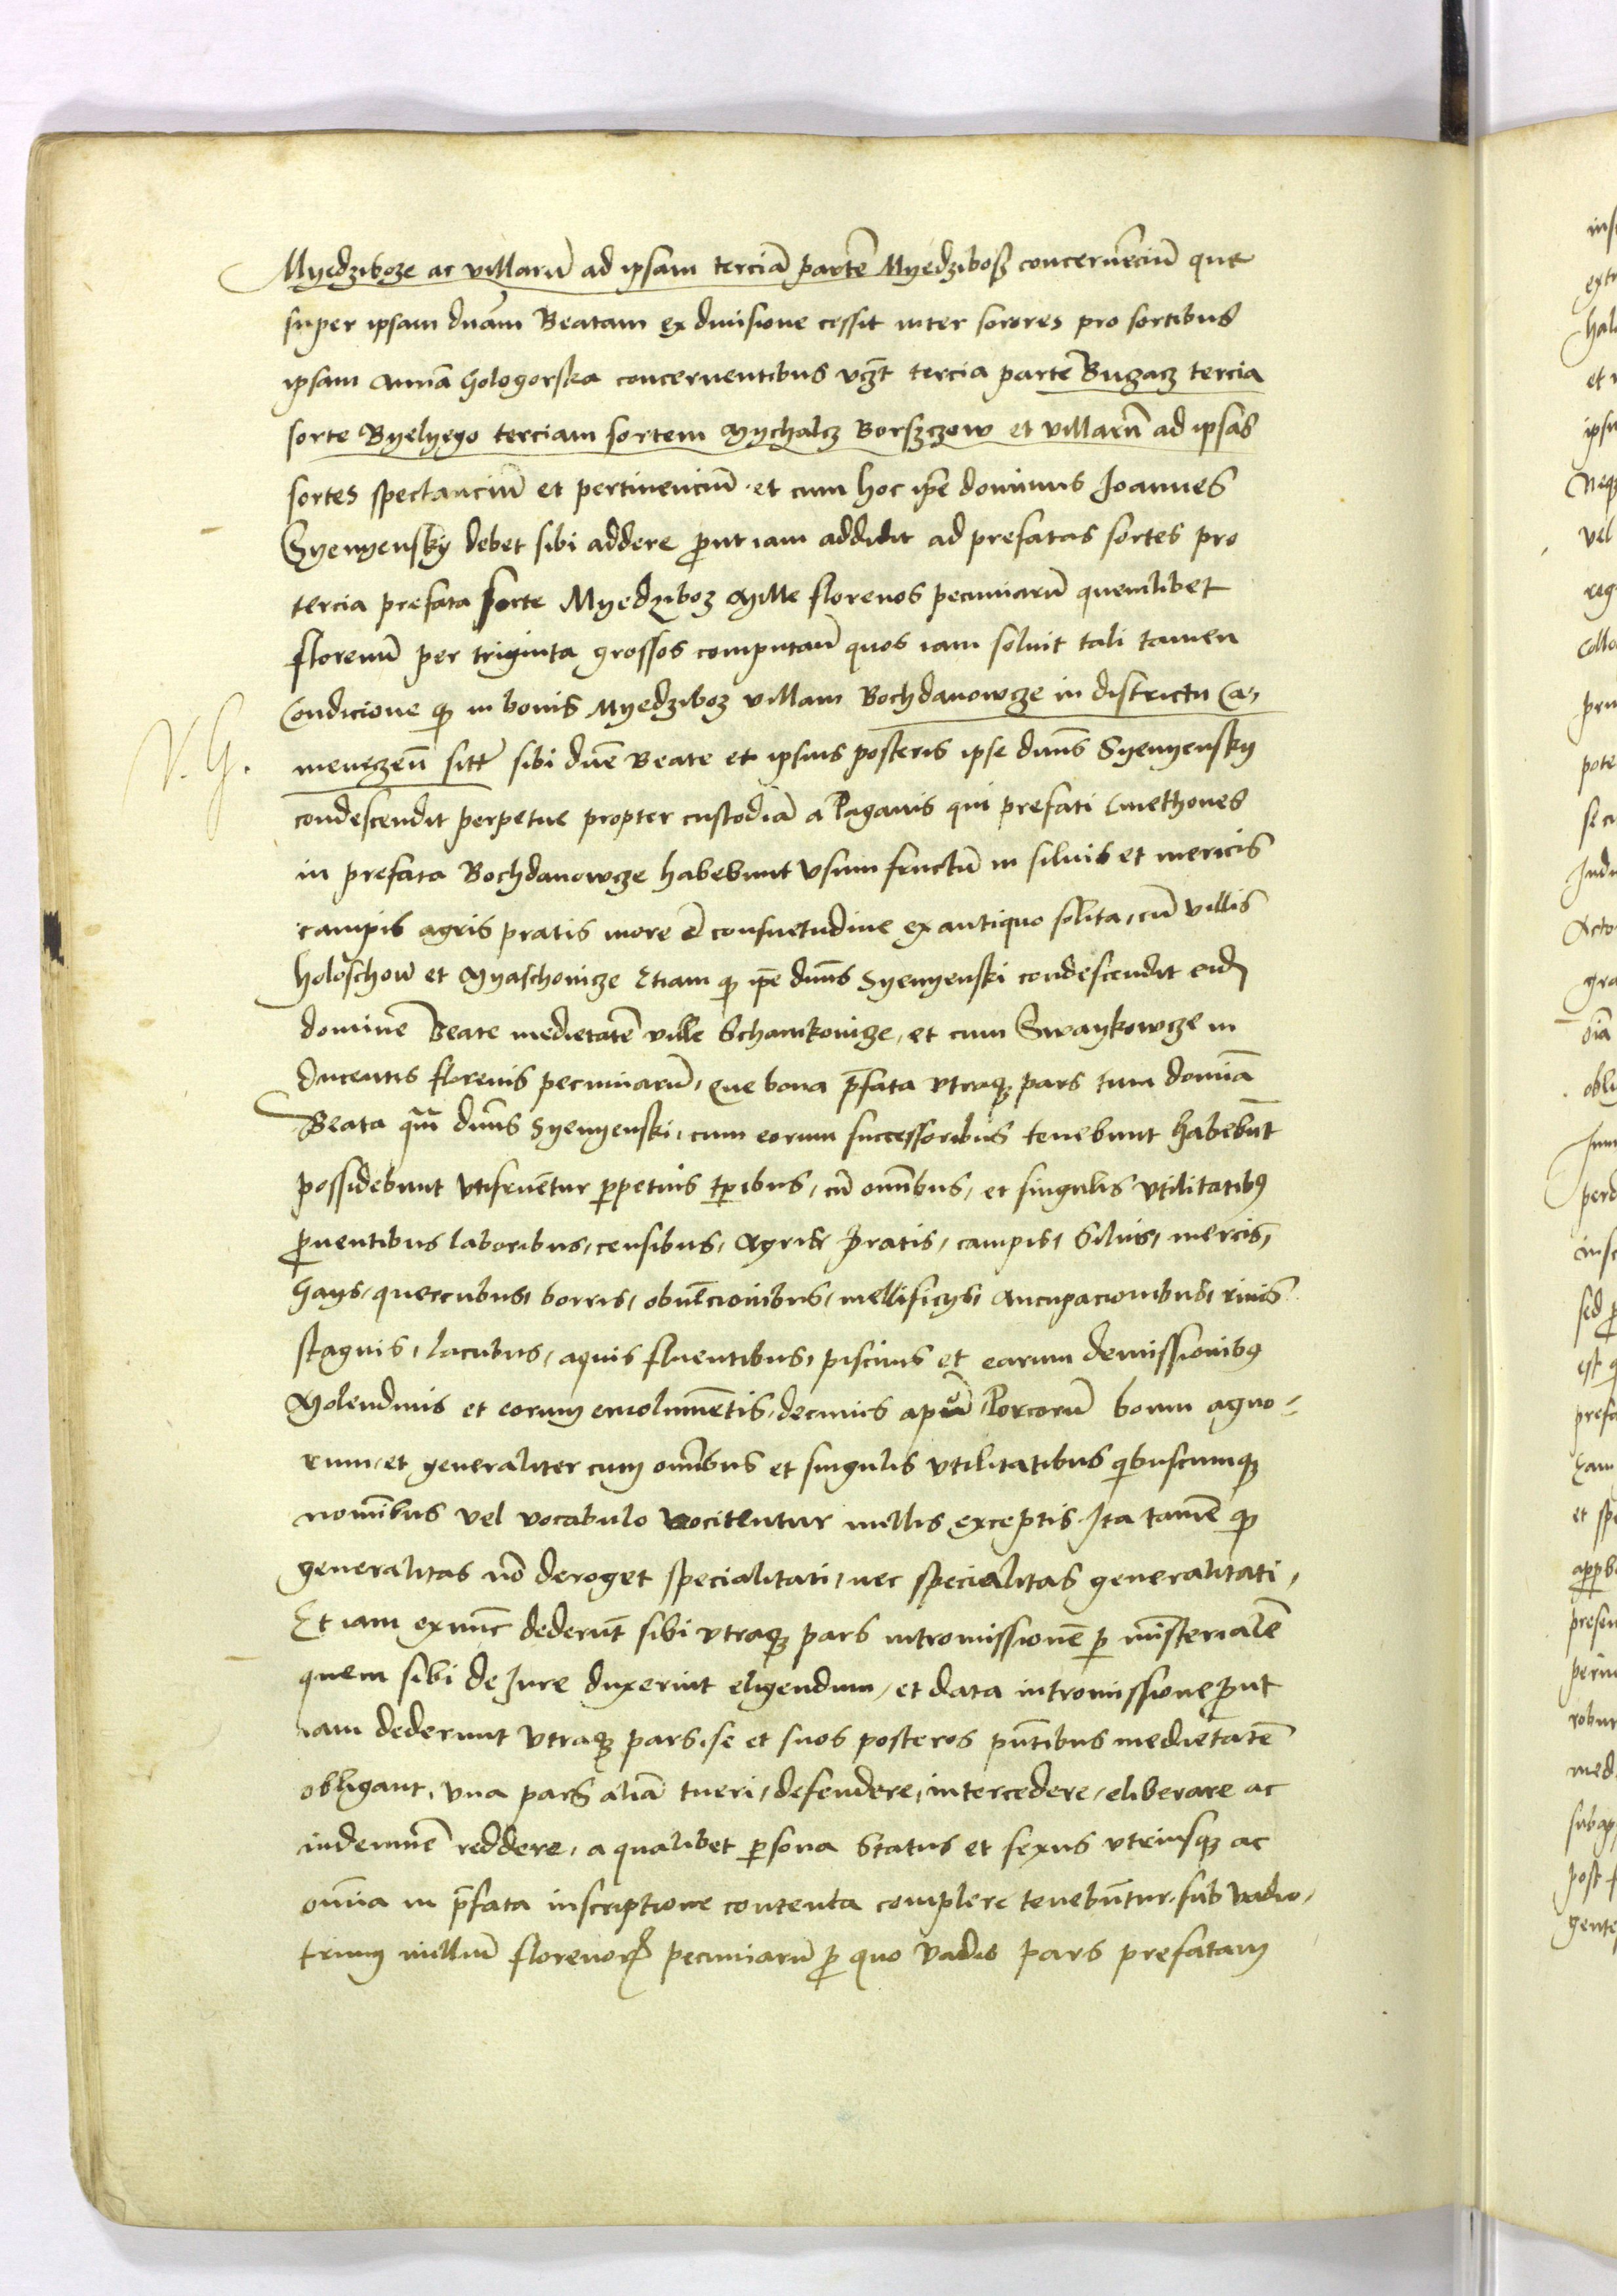 Myedziboze ac villarū ad ipsam terciā partē Myedziboß concernēciū que
super ipsam dnām Beatam ex diuisione cessit inter sorores pro sortibus
ipsam annā hologorska concernentibus vcȝt tercia partē Buȝacȝ tercia
sorte Byelyego terciam sortem Mychalcȝ Borsȝcȝow et villarū ad ipsas
sortes spectanciū et pertinenciū et cum hoc ipē dominus Joannes
Syenyensky debet sibi addere prout iam addidit ad prefatas sortes pro
tercia prefata sorte Myedziboȝ Mille florenos pecuniarū quemlibet
florenū per triginta grossos computan̄ quos iam soluit tali tamen
Condicione qȝ in bonis Myedziboȝ villam Bochdanowcȝe in districtu Ca-
V. G.
menecȝen̄ sitt̄ sibi dnē Beate et ipsius posteris ipse dnūs Syenyensky
condescendit perpetue propter custodiā a Paganis qui prefati Cmethones
in prefata Bochdanowcȝe habebunt vsum fructū in siluis et mericis
campis agris pratis more et consuetudine ex antiquo solita, cū villis
holoschow et Myaschowicȝe Etiam qȝ ipē dnūs Syenyenski condescendit eidȝ
dominē Beate medietatē ville Schamkowicȝe, et cum Swaykowcȝe in
ducentis florenis pecuniarū, que bona p̄fata vtraqȝ pars tum dominā
Beata quā dnūs Syenyenski, cum eorum successoribus tenebunt habebūt
possidebunt vtifruentur perpetuis tp̄ribus, cū omībus, et singulis vtilitatibus
prouentibus laboribus, censibus, agris pratis, campis, siluis, mericis,
Gays, quercubus, borris, obuēcionibus, mellificys, aucupacionibus, riuis
stagnis, lacubus, aquis fluentibus, piscinis et earum demissionibus
Molendinis et eorum emolumētis, decimis apum, Porcorū boum agno-
rum, et generaliter cum omībus et singulis vtilitatibus quibuscumqȝ
nomībus vel vocabulo vocitentur nullis exceptis. Ita tamē qȝ
generalitas nō deroget specialitati, nec specialitas generalitati,
Et iam exnūc dederūt sibi vtraqȝ pars intromissionē p mīsterialē
quem sibi de Jure duxerint eligendum, et data intromissione prout
iam dederunt vtraqȝ pars, se et suos posteros pn̄tibus medietatē
obligant, vna pars aliā tueri, defendere, intercedere, eliberare ac
indemnē reddere, a qualibet persona status et sexus vtriusqȝ ac
omīa in p̄fata inscriptione contenta complere tenebūtur, sub vadio,
trium milliū florenorū pecuniarū pro quo vadio pars prefatam